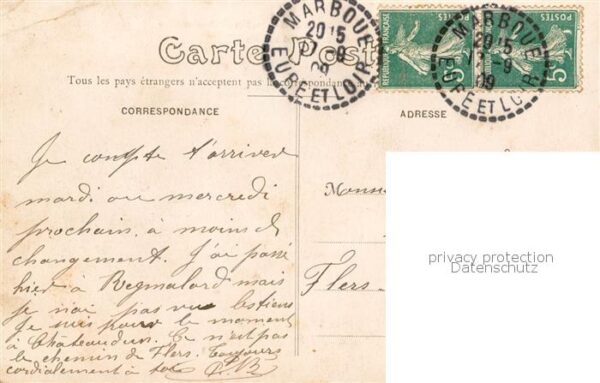 Carte Postale
Tous les pays étrangers n'acceptent pas la correspondance
CORRESPONDANCE
ADRESSE
MARBOUÉ
20 15
17-9
09
EURE ET LOIR
MARBOUÉ
20 15
17-9
09
EURE ET LOIR
REPUBLIQUE FRANÇAISE
POSTES
5
POSTES
5
Je compte t'arriver
mardi ou mercredi
prochain, à moins de
changement. J'ai passé
hier à Regmalard mais
je n'ai pas vu les tiens
Je suis pour le moment
à Châteaudun. Ce n'est pas
le chemin de Flers. Toujours
cordialement à toi
Monsieur
Flers
privacy protection
Datenschutz